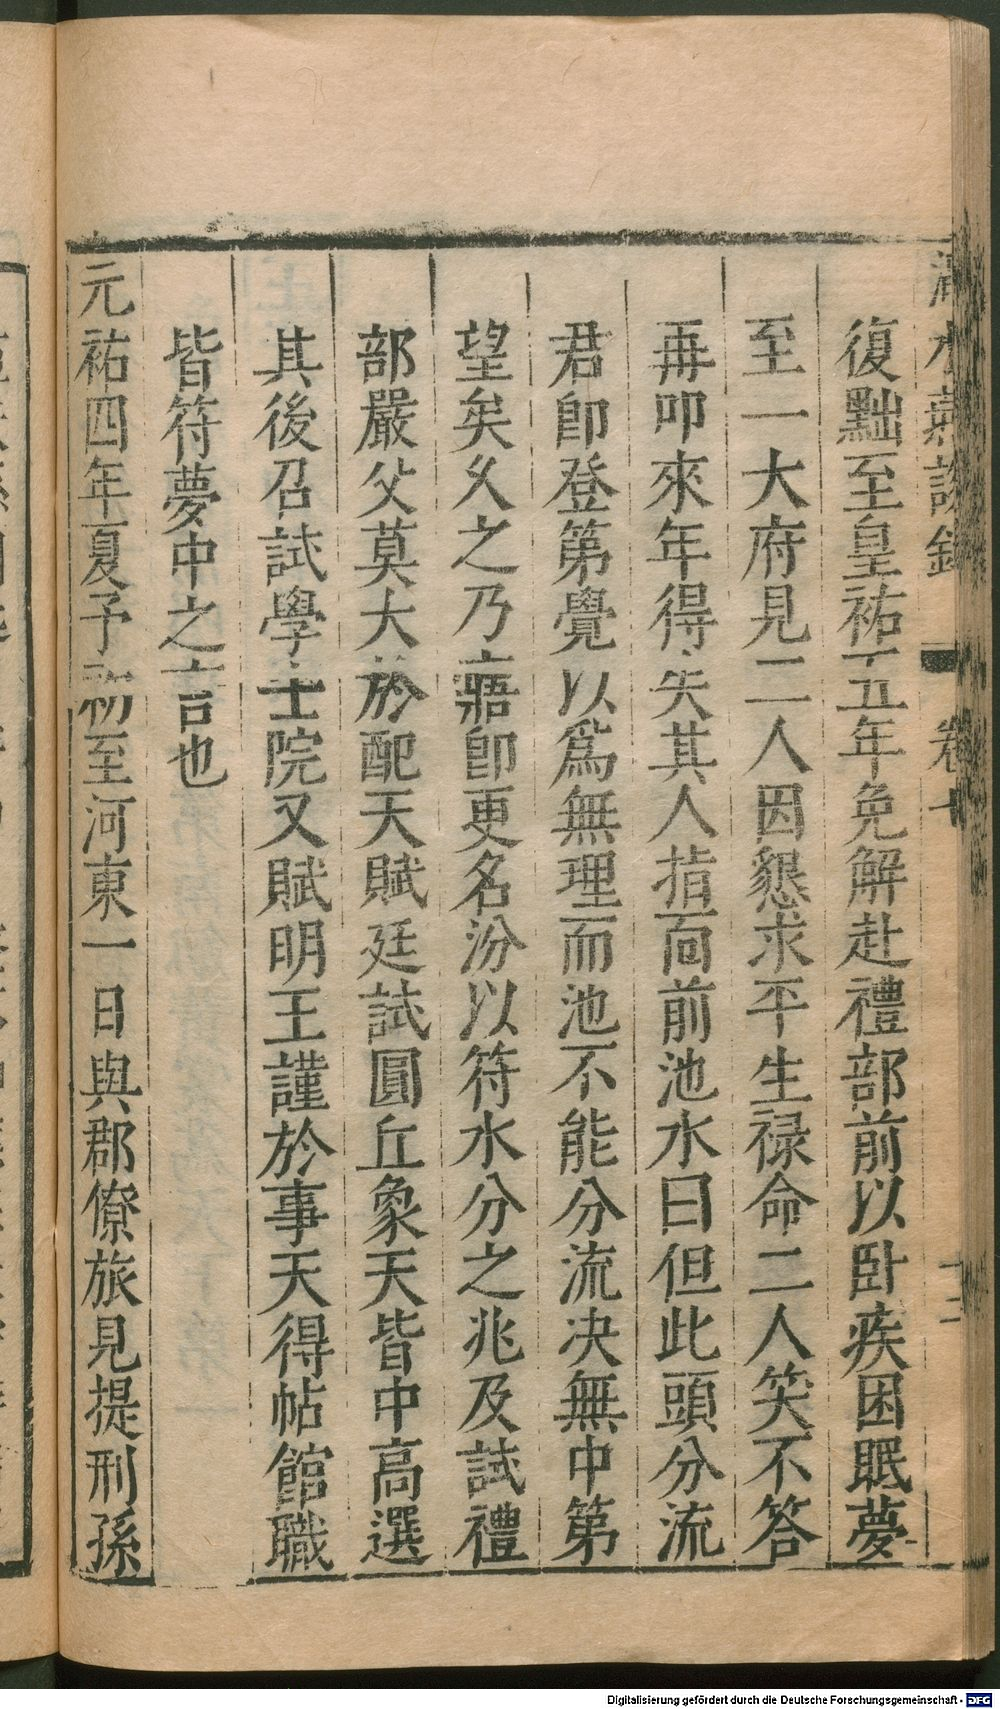 澠水燕談錄 卷十 十二
復黜至皇祐五年免解赴禮部前以卧疾困眠夢
至一大府見二人因懇求平生禄命二人笑不答
再叩來年得失其人指面前池水曰但此頭分流
君卽登第覺以爲無理而池不能分流决無中第
望矣乆之乃寤卽更名汾以符水分之兆及試禮
部嚴父莫大於配天賦廷試圓丘象天皆中高選
其後召試學士院又賦明王謹於事天得帖館職
皆符夢中之言也
元祐四年夏予初至河東一日與郡僚旅見提刑孫
Digitalisierung gefördert durch die Deutsche Forschungsgemeinschaft - DFG